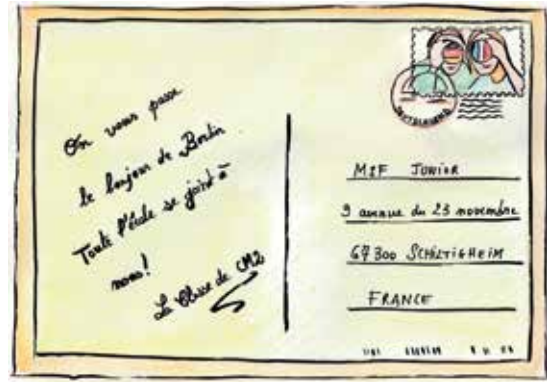 On vous passe
le bonjour de Berlin
Toute l'école se joint à
nous!
La Classe de CM2
DEUTSCHLAND
M2F JUNIOR
9 avenue du 23 novembre
67300 SCHILTIGHEIM
FRANCE